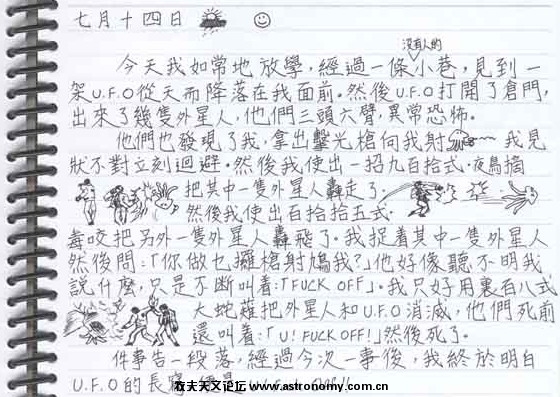 七月十四日
沒有人的
今天我如常地放學,經過一條小巷,見到一
架U.F.O從天而降落在我面前.然後U.F.O打開了倉門,
出來了幾隻外星人,他們三頭六臂,異常恐怖.
他們也發現了我,拿出擊光槍向我射 我見
狀不對立刻迴避.然後我使出一招九百拾式.夜鳥摘
把其中一隻外星人轟走了.
然後我使出百拾拾五式.
毒咬把另外一隻外星人轟飛了.我捉着其中一隻外星人
然後問:「你做乜攞槍射鳩我?」他好像聽不明我
說什麼,只是不斷叫着:「FUCK OFF」.我只好用裏百八式
大蛇薙把外星人和U.F.O消滅,他們死前
還叫着:「U! FUCK OFF!」然後死了.
件事告一段落,經過今次一事後,我終於明白
U.F.O的長寫
农夫天文论坛 www.astronomy.com.cn